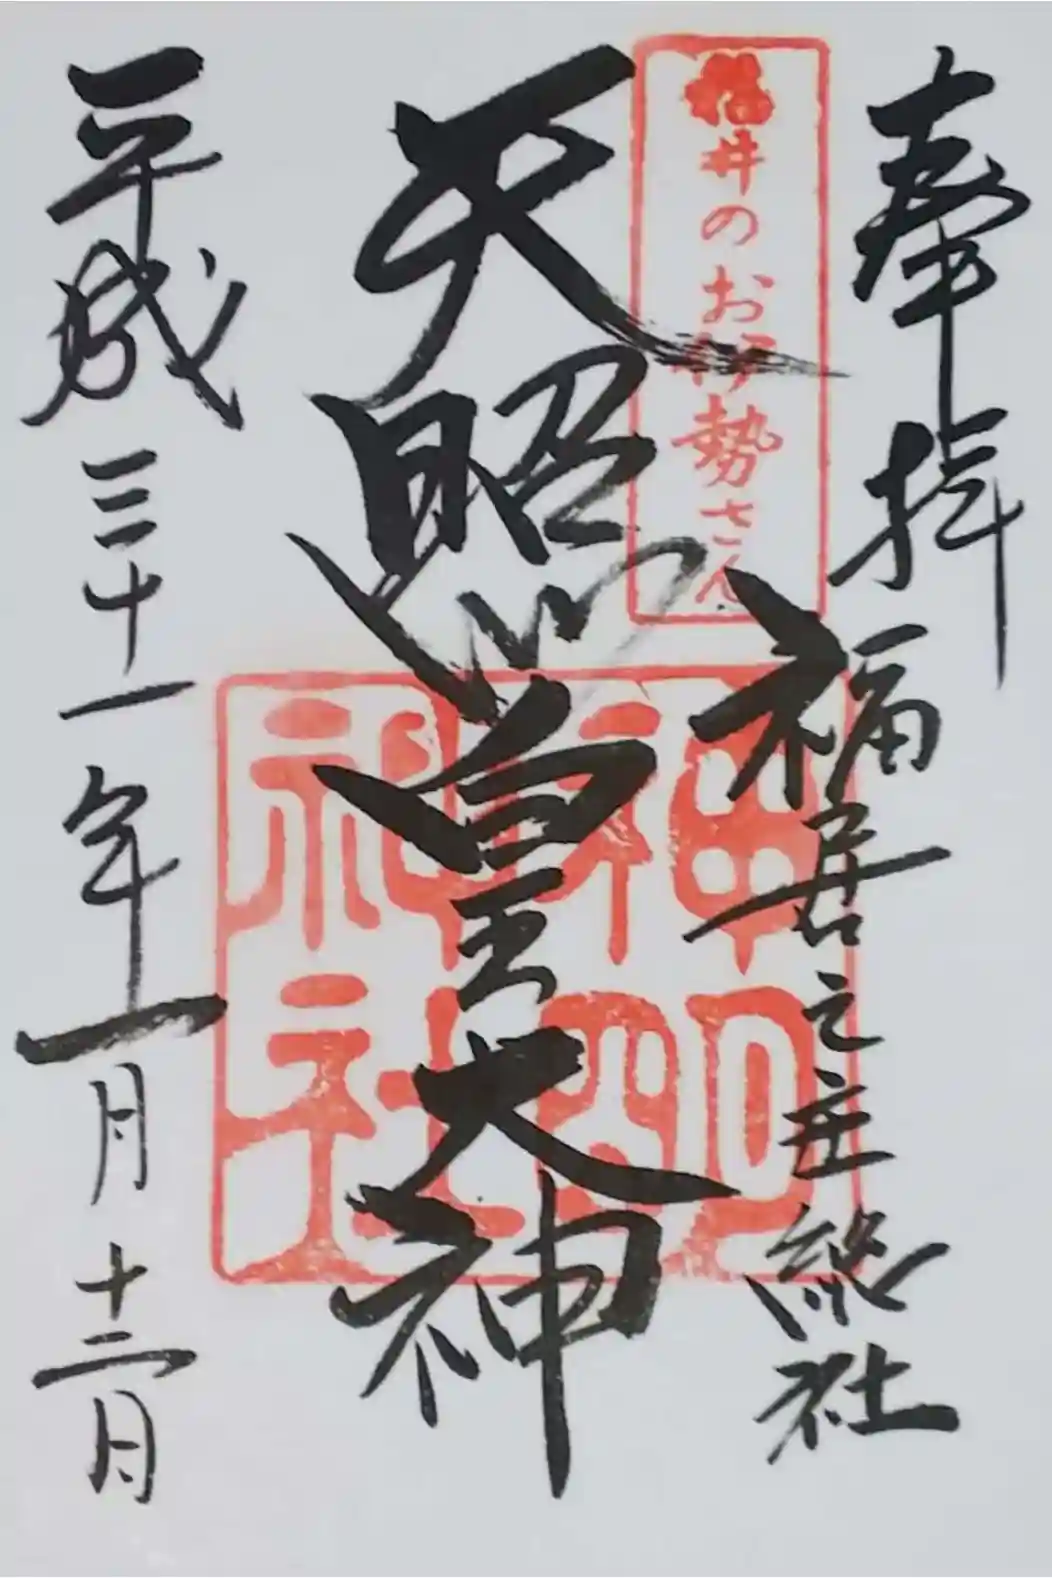 奉拝
福居之庄総社
福井のお伊勢さん
天照皇大神
神明神社
平成三十一年一月十二日